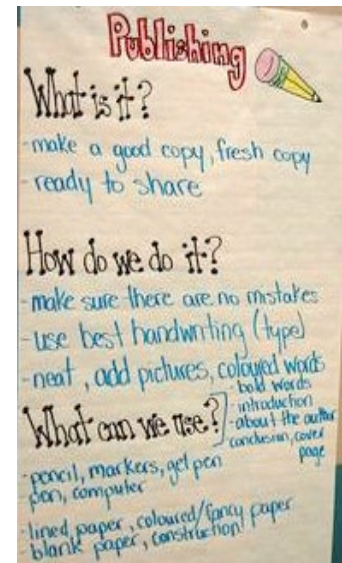 Publishing
What is it?
-make a good copy, fresh copy
-ready to share
How do we do it?
-make sure there are no mistakes
-use best handwriting (type)
-neat, add pictures, coloured words
-bold words
-introduction
-about the author
conclusion, cover
page
What can we use?
-pencil, markers, gel pen
-pen, computer
-lined paper, coloured/fancy paper
-blank paper, construction